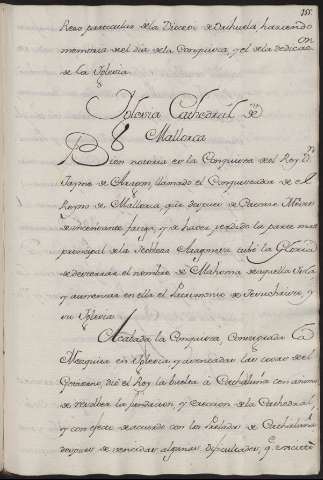 255
Rezo particular de la Diocesi de Orihuela haciendo
on
memoria del dia de la Conquista, y el de la Dedicac
de la Iglesia.
Iglesia Cathedrál de
Mallorca
Bien notoria es la Conquista del Rey Dn
Jayme de Aragon, llamado el Conquistador de el
Reyno de Mallorca, que despues de
fatiga, y de haver perdido la parte mas
principal de la Nobleza Aragonesa tubo la Gloria
de desterrar el nombre de Mahoma de aquella Isla
y aumentar en ella el Patrimonio de Jesuchristo, y
su Iglesia.
Acabada la Conquista, Consagrada la
Mezquita en Iglesia y las cosas del
Govierno, dió el Rey la buelta á Cathaluña con animo
de resolber la fundacion, y ereccion de la Cathedral,
y con efecto de acuerdo con los Prelados de Cathaluña
despues de vencidas algunas dificultades, q.e